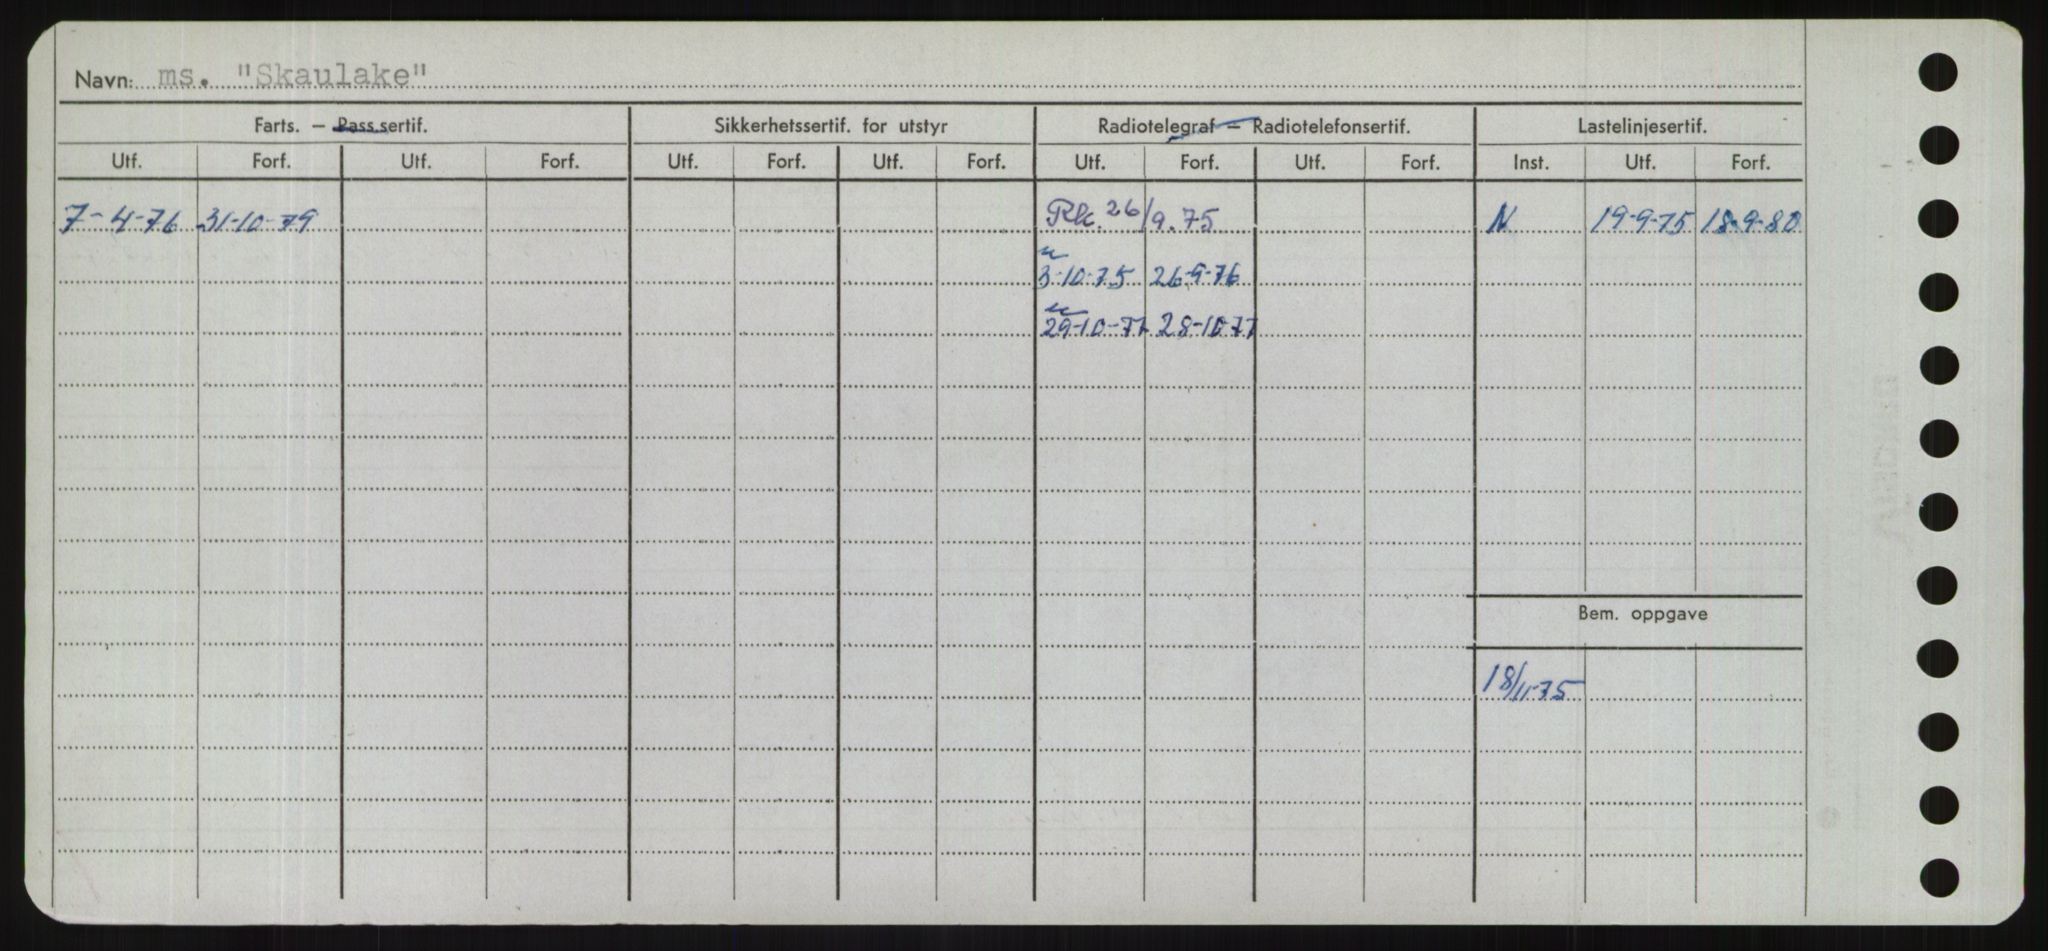 Navn: ms. "Skaulake"
Farts. — Pass.sertif. Sikkerhetssertif. for utstyr Radiotelegraf — Radiotelefonsertif. Lastelinjesertif.
Utf. Forf. Utf. Forf. Utf. Forf. Utf. Forf. Utf. Forf. Utf. Forf. Inst. Utf. Forf.
7-4-76 31-10-79 Rk. 26/9.75 N 19-9-75 18-9-80
3-10-75 26-9-76
29-10-77 28-10-77
Bem. oppgave
18/11-75